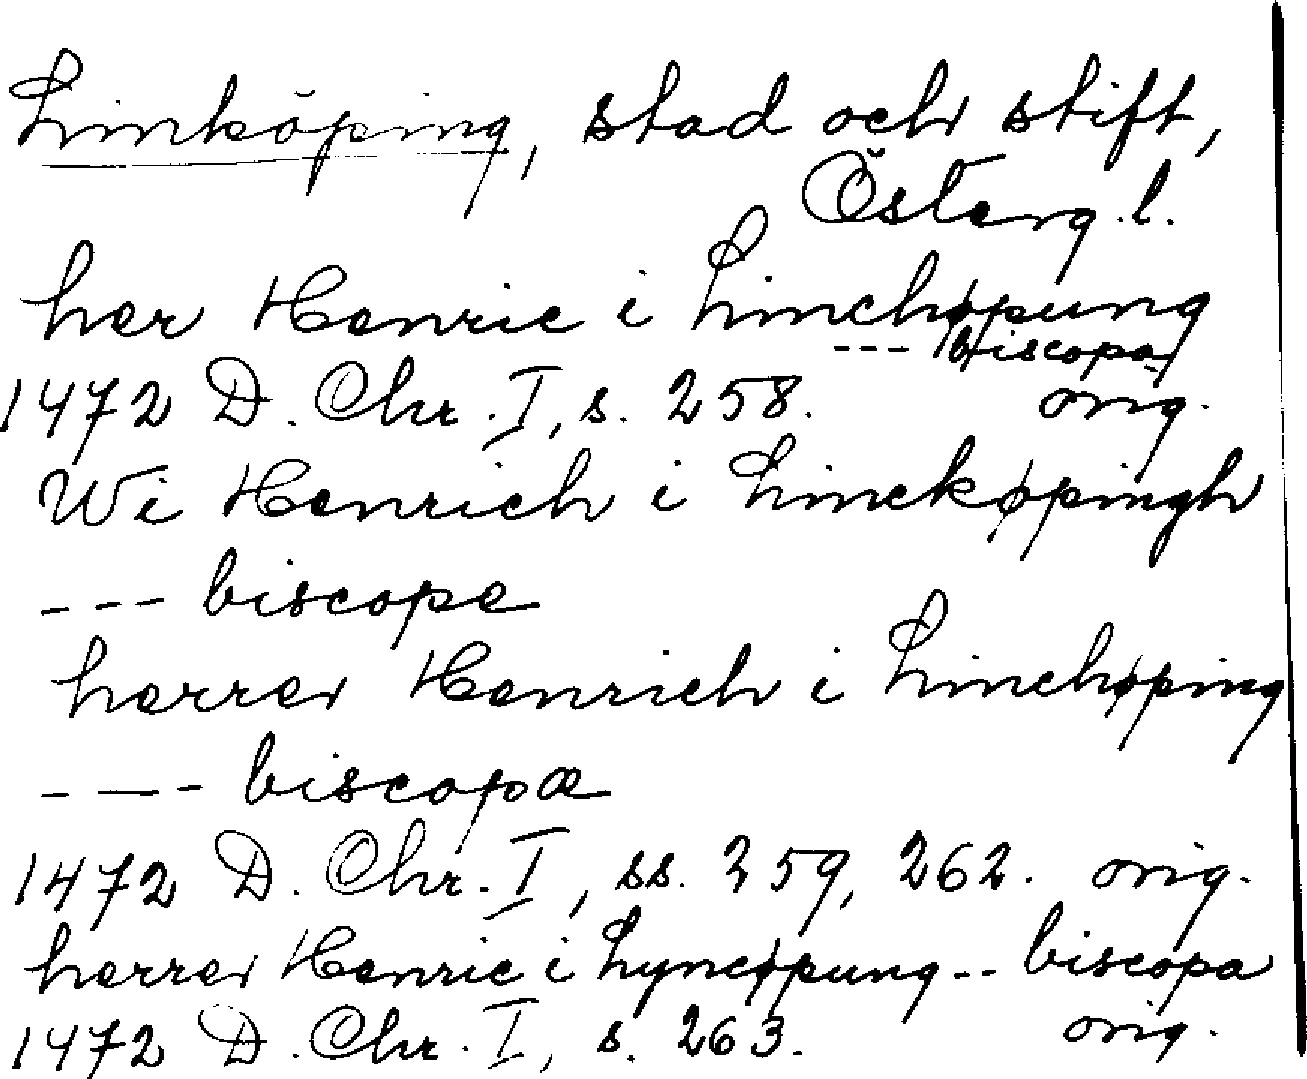 Linköping, stad och stift,
Österg.l.
her Henric i Linchøpung
--- biscopa
1472 D. Chr. I, s. 258. orig.
Wi Henrich i Linckøpingh
--- biscope
herrer Henrich i Linchøping
---- biscopæ
1472 D. Chr. I, ss. 259, 262. orig.
herrer Henric i Lyncøpung -- biscopa
1472 D. Chr. I, s. 263. orig.